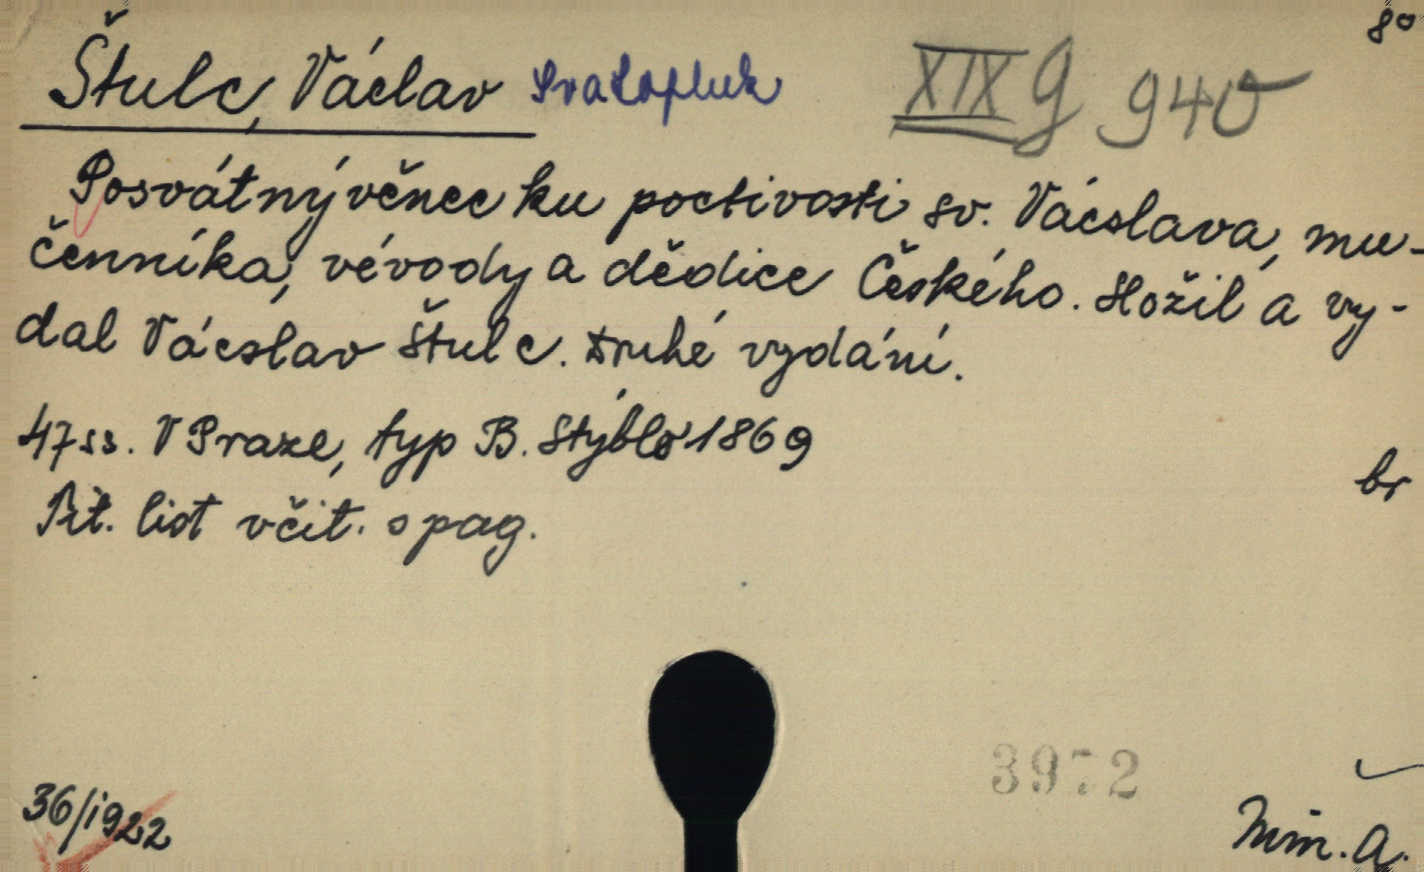 8°
Štulc, Václav Svatopluk XIX G 940
Posvátný věnec ku poctivosti sv. Vácslava, mu-
čenníka, vévody a dědice Českého. Složil a vy-
dal Vácslav Štulc. Druhé vydání.
47 ss. V Praze, typ B. Stýblo 1869
br
Tit. list včit. o pag.
3972
36/1922
Mim. A.